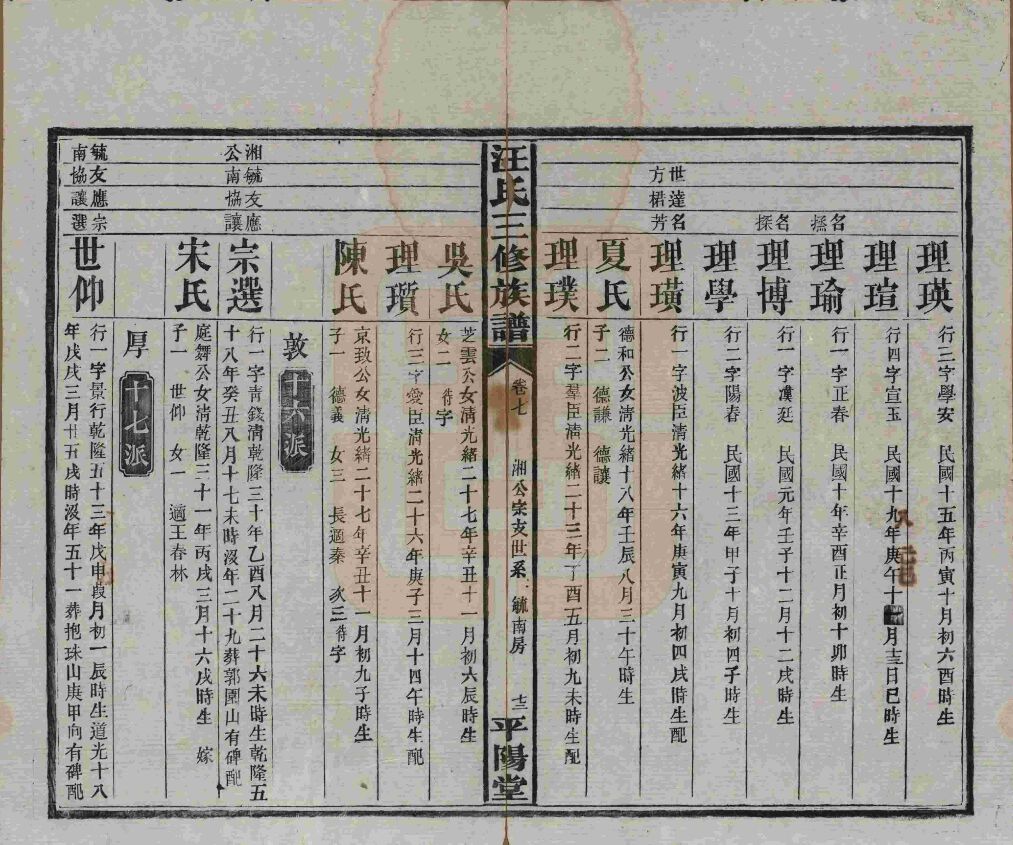 理瑛
行三字學安 民國十五年丙寅十月初六酉時生
理瑄
行四字宣玉 民國十九年庚午十月十三日巳時生
名搽
理瑜
行一字正春 民國十年辛酉正月初十卯時生
名探
理博
行一字漢廷 民國元年壬子十二月十二戌時生
理學
行二字陽春 民國十三年甲子十月初四子時生
世達名
方桾芳
理璜
行一字波臣清光緒十六年庚寅九月初四戌時生配
夏氏
德和公女清光緒十八年壬辰八月三十午時生
子二 德謙 德讓
理璞
行二字羣臣清光緒二十三年丁酉五月初九未時生配
汪氏三修族譜
卷七
湘公宗支世系 毓南房
十三
平陽堂
吳氏
芝雲公女清光緒二十七年辛丑十一月初六辰時生
女二 待字
理瓚
行三字愛臣清光緒二十六年庚子三月十四午時生配
陳氏
京致公女清光緒二十七年辛丑十一月初九子時生
子一 德義 女三 長適秦 次三待字
敦 十六派
湘毓友應
公南協讓
宗選
行一字青錢清乾隆三十年乙酉八月二十六未時生乾隆五
十八年癸丑八月十七未時沒年二十九葬郭園山有碑配
宋氏
庭舞公女清乾隆三十一年丙戌三月十六戌時生 嫁
子一 世仰 女一 適王春林
厚 十七派
毓友應宗
南協讓選
世仰
行一字景行乾隆五十三年戊申葭月初一辰時生道光十八
年戊戌三月廿五戌時沒年五十一葬抱珠山庚甲向有碑配